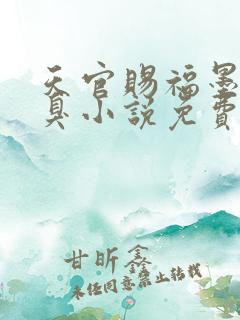 天官賜福墨
真小説免費
甘昕鑫
未经同意禁止转载